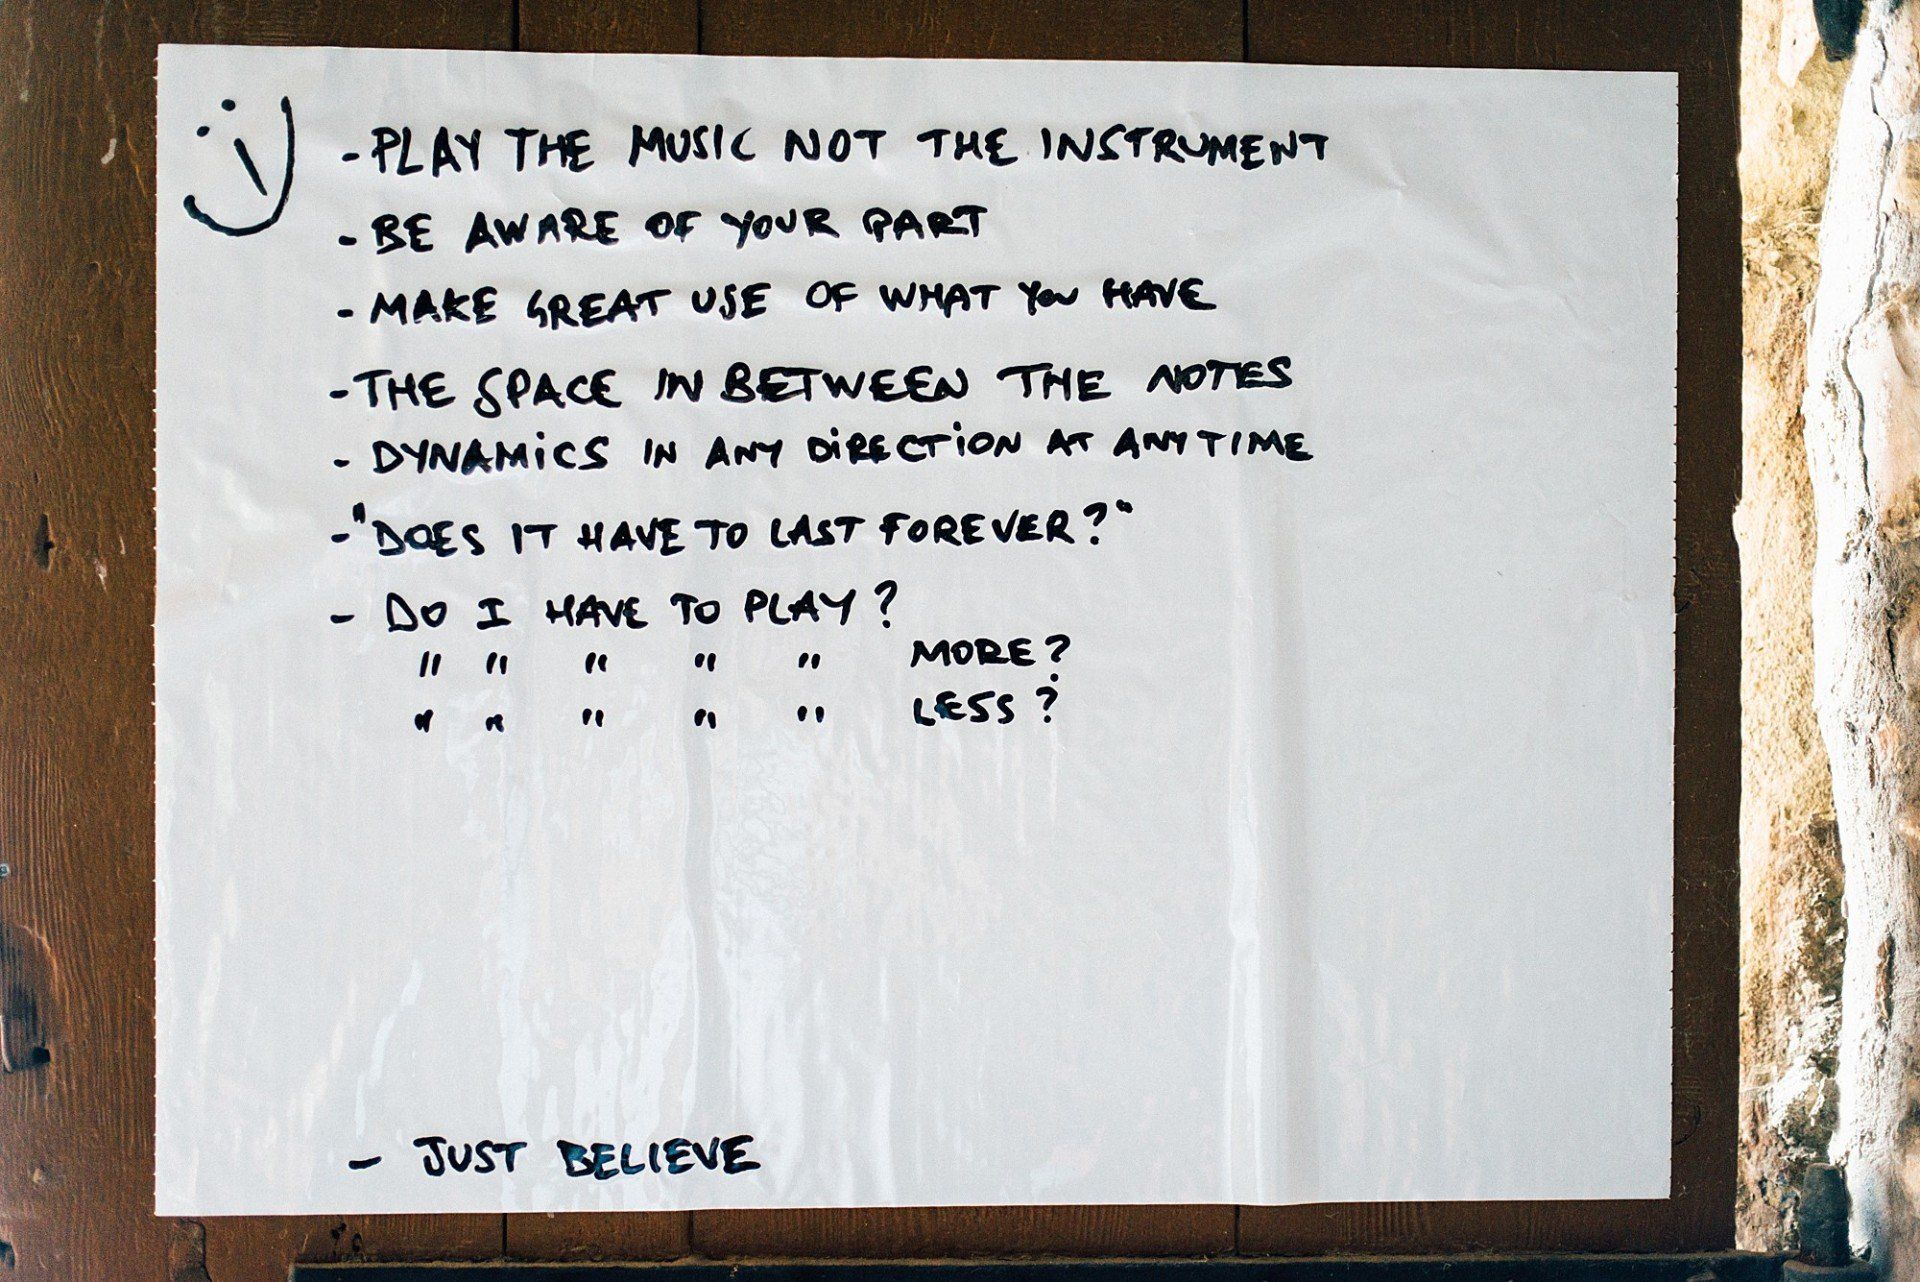 - PLAY THE MUSIC NOT THE INSTRUMENT
- BE AWARE OF YOUR PART
- MAKE GREAT USE OF WHAT YOU HAVE
- THE SPACE IN BETWEEN THE NOTES
- DYNAMiCS IN ANY DiRECTiON AT ANYTIME
- "DOES IT HAVE TO LAST FOREVER?"
- DO I HAVE TO PLAY?
" " " " " MORE?
" " " " " LESS?
- JUST BELIEVE